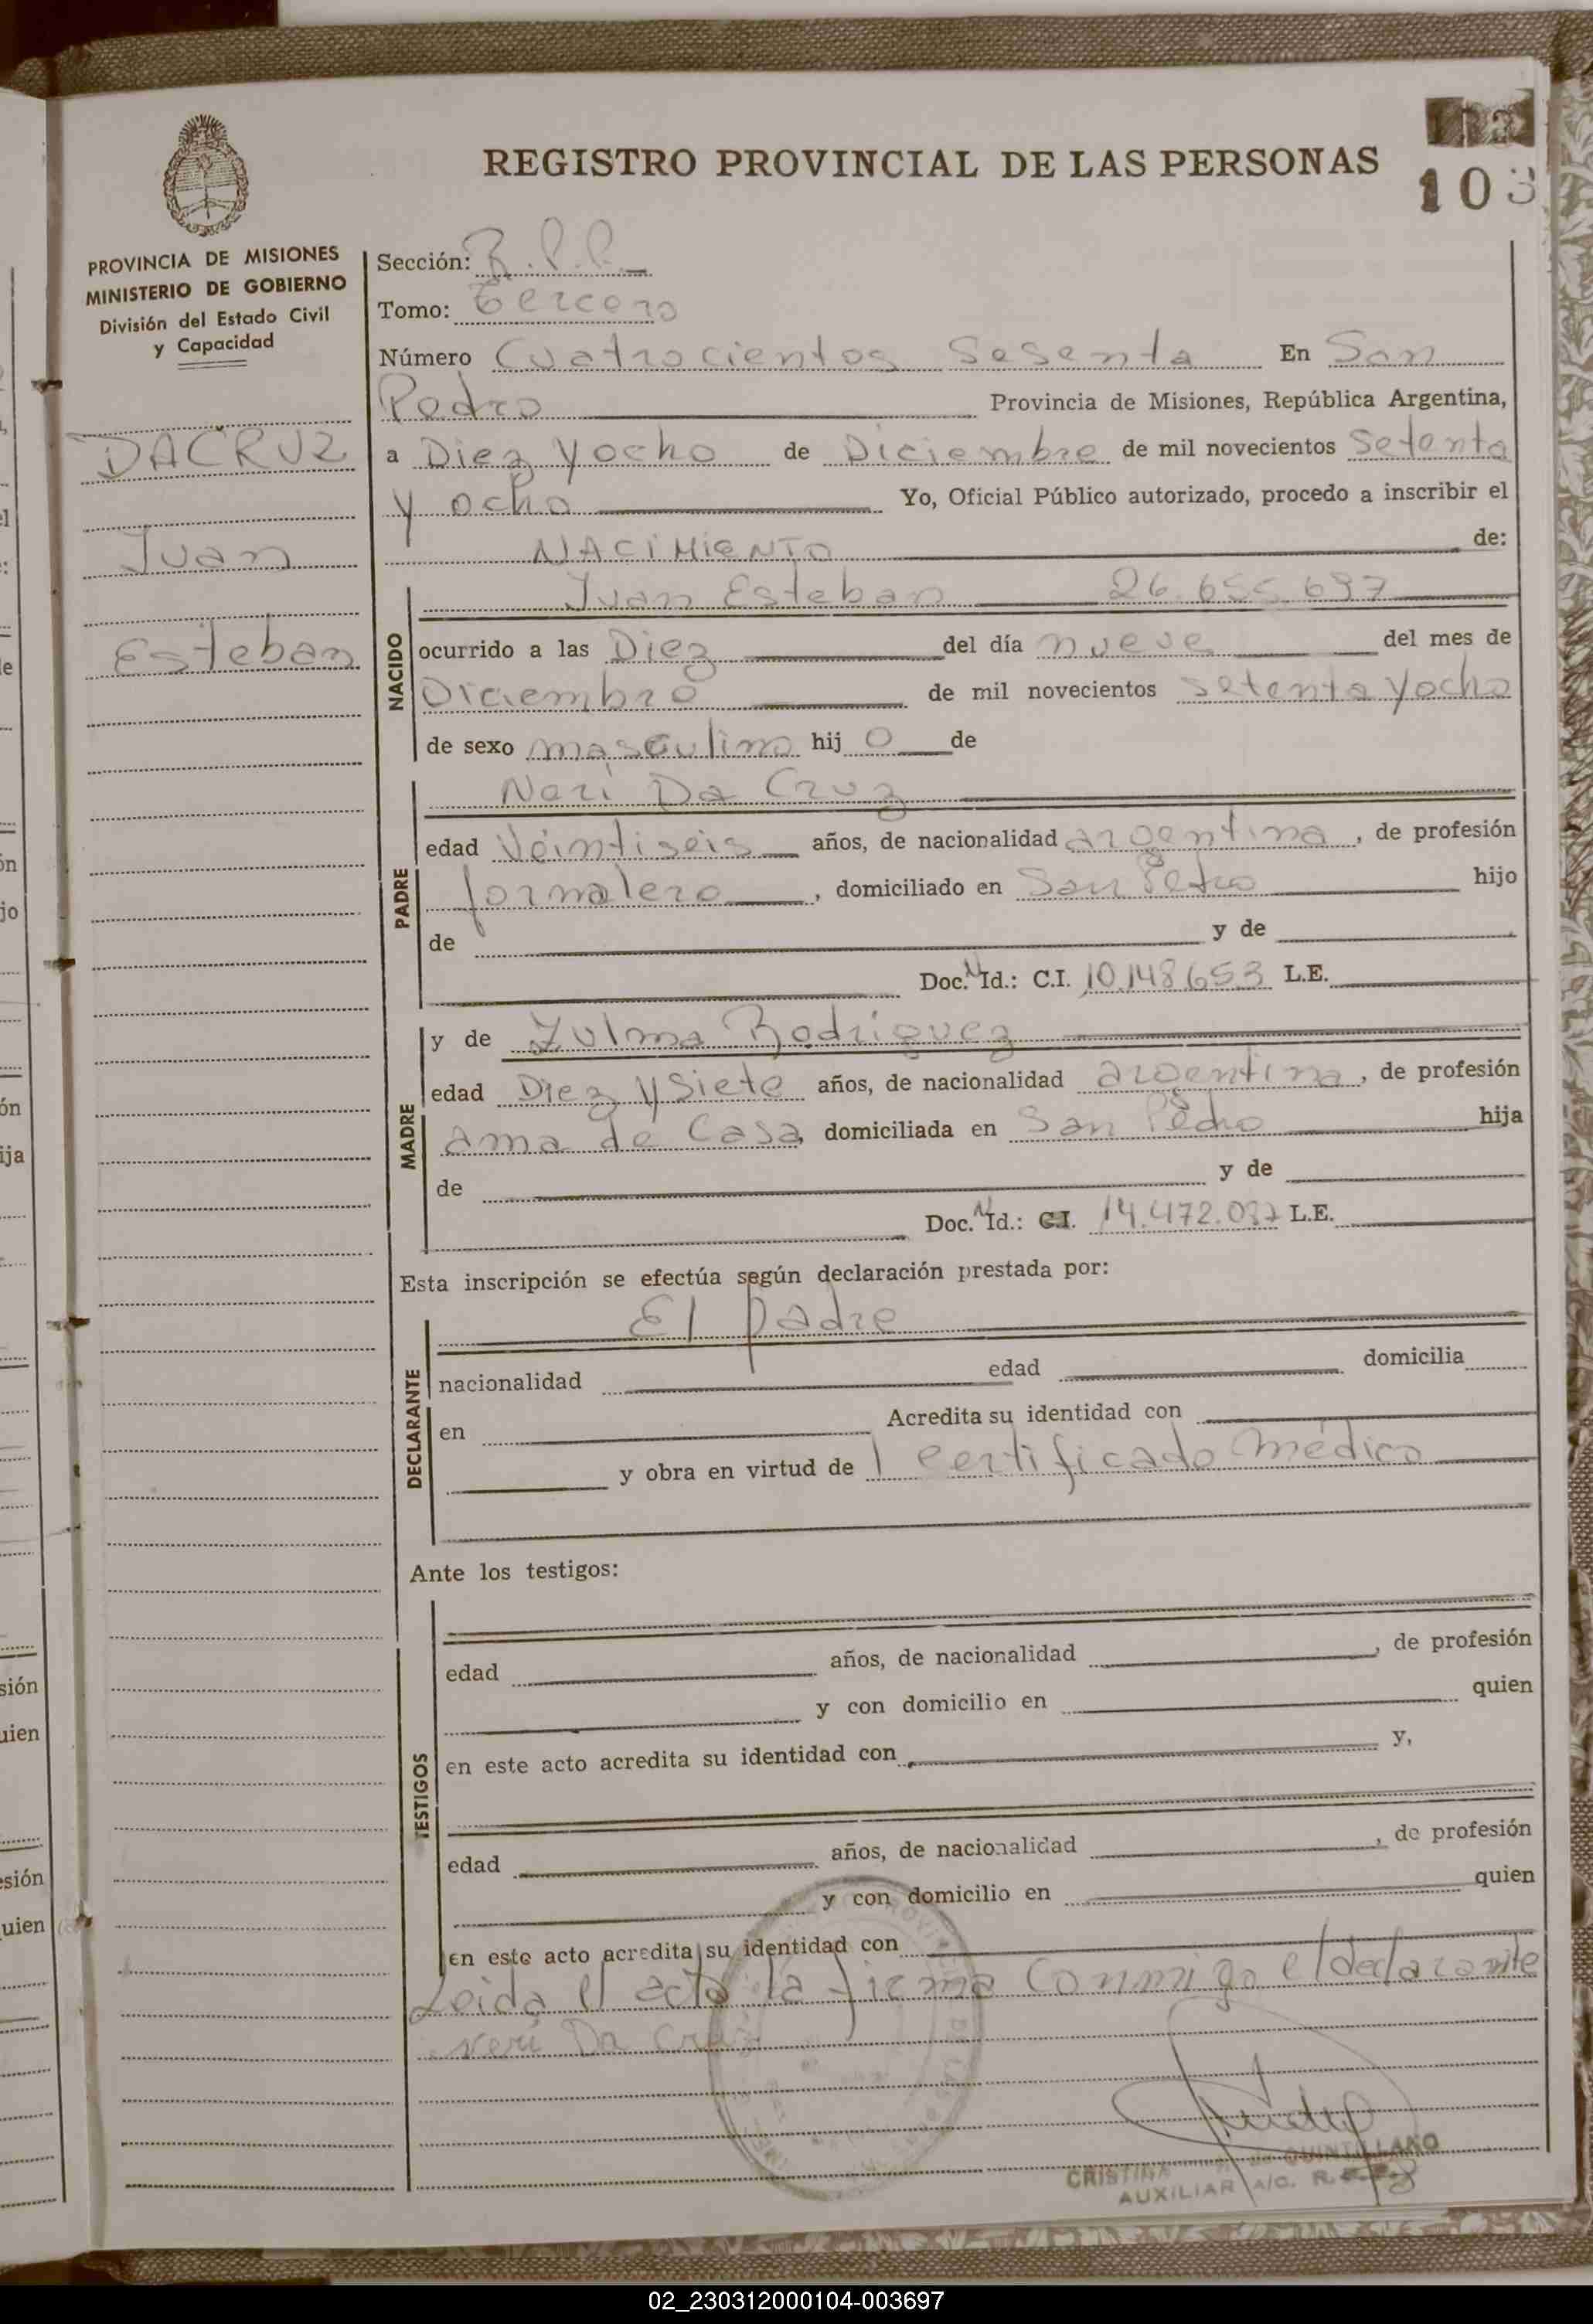 REGISTRO PROVINCIAL DE LAS PERSONAS
103
PROVINCIA DE MISIONES
MINISTERIO DE GOBIERNO
División del Estado Civil
y Capacidad
DA CRUZ
Juan
Esteban
Sección: R.P.P.
Tomo: Tercero
Número Cuatrocientos Sesenta En San
Pedro Provincia de Misiones, República Argentina,
a Diez y ocho de Diciembre de mil novecientos setenta
y ocho Yo, Oficial Público autorizado, procedo a inscribir el
NACIMIENTO de:
NACIDO
Juan Esteban 26.655.697
ocurrido a las Diez del día nueve del mes de
Diciembre de mil novecientos setenta y ocho
de sexo masculino hijo de
PADRE
Neri Da Cruz
edad Veintiseis años, de nacionalidad argentina, de profesión
jornalero, domiciliado en San Pedro hijo
de y de
Doc. N Id.: C.I. 10.148.653 L.E.
MADRE
y de Zulma Rodriguez
edad Diez y Siete años, de nacionalidad argentina, de profesión
ama de Casa, domiciliada en San Pedro hija
de y de
Doc. N Id.: C.I. 14.472.037 L.E.
Esta inscripción se efectúa según declaración prestada por:
DECLARANTE
El padre
nacionalidad edad domicilia
en Acredita su identidad con
y obra en virtud de 1 certificado médico
Ante los testigos:
TESTIGOS
edad años, de nacionalidad , de profesión
y con domicilio en quien
en este acto acredita su identidad con y,
edad años, de nacionalidad , de profesión
y con domicilio en quien
en este acto acredita su identidad con
Leida el acta la firma conmigo el declarante
neri Da Cruz
CRISTINA de QUINTILLANO
AUXILIAR A/C. R.
02_230312000104-003697